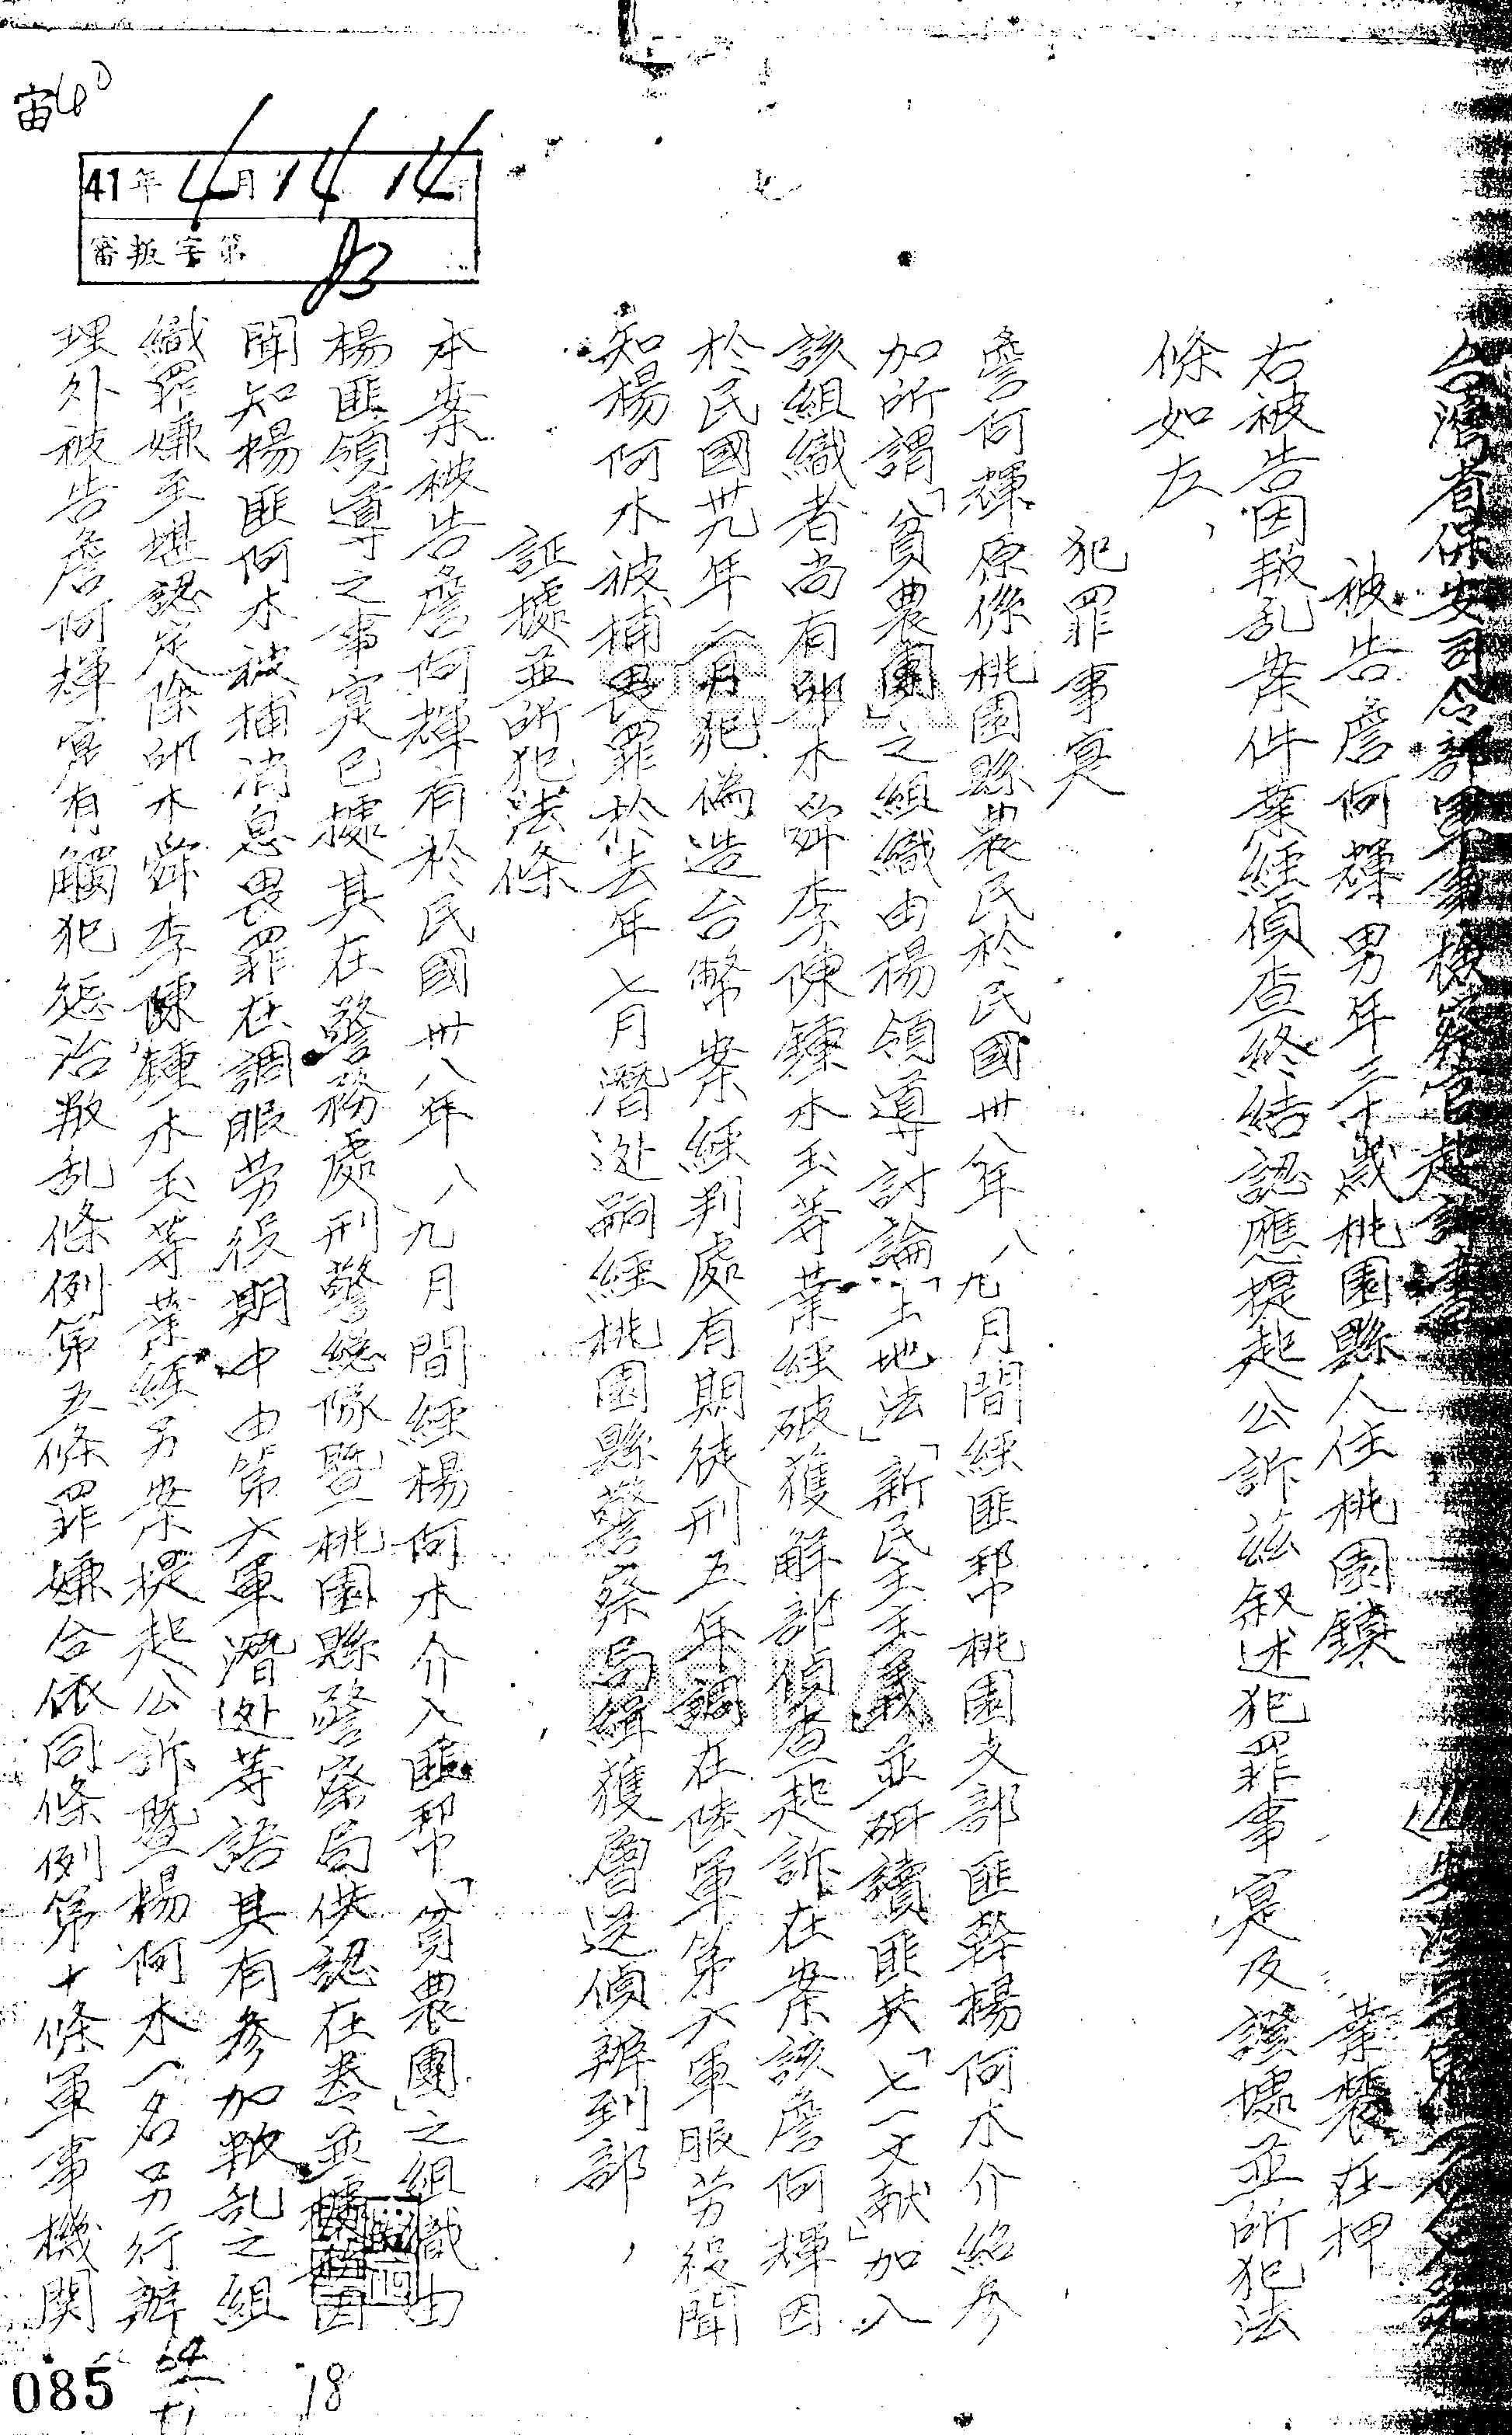 宙40
41年4月14 14
審叛字第 83
台灣省保安司令部軍事檢察官起訴書
被告詹阿輝男年三十歲桃園縣人住桃園鎮 業農在押
右被告因叛乱案件業經偵查終結認應提起公訴茲叙述犯罪事实及證據並所犯法
條如左、
犯罪事实
詹阿輝原係桃園縣農民於民國卅八年八、九月間經匪帮桃園支部匪幹楊阿木介紹参
加所謂「貧農團」之組織由楊領導討論「土地法」「新民主主義」並研讀匪共「七一文献」加入
該組織者尚有邱水舜李陳鍾木玉等業經破獲解部偵查起訴在案該詹阿輝因
於民國卅九年二月犯偽造台幣案經判處有期徒刑五年調在陸軍第六軍服劳役聞
知楊阿木被捕畏罪於去年七月潛逃嗣經桃園縣警察局緝獲層送偵辦到部，
証據並所犯法條
本案被告詹阿輝有於民國卅八年八、九月間經楊阿木介入匪帮「貧農團」之組織由
楊匪領導之事实已據其在警務處刑警總隊暨桃園縣警察局供認在卷並據稱因
聞知楊匪阿木被捕消息畏罪在調服劳役期中由第六軍潛逃等語其有参加叛乱之組
織罪嫌至堪認定除邱水舜李陳鍾木玉等業經另案提起公訴暨楊阿木一名另行辦
理外被告詹阿輝实有觸犯懲治叛乱條例第五條罪嫌合依同條例第十條軍事機関
085
18